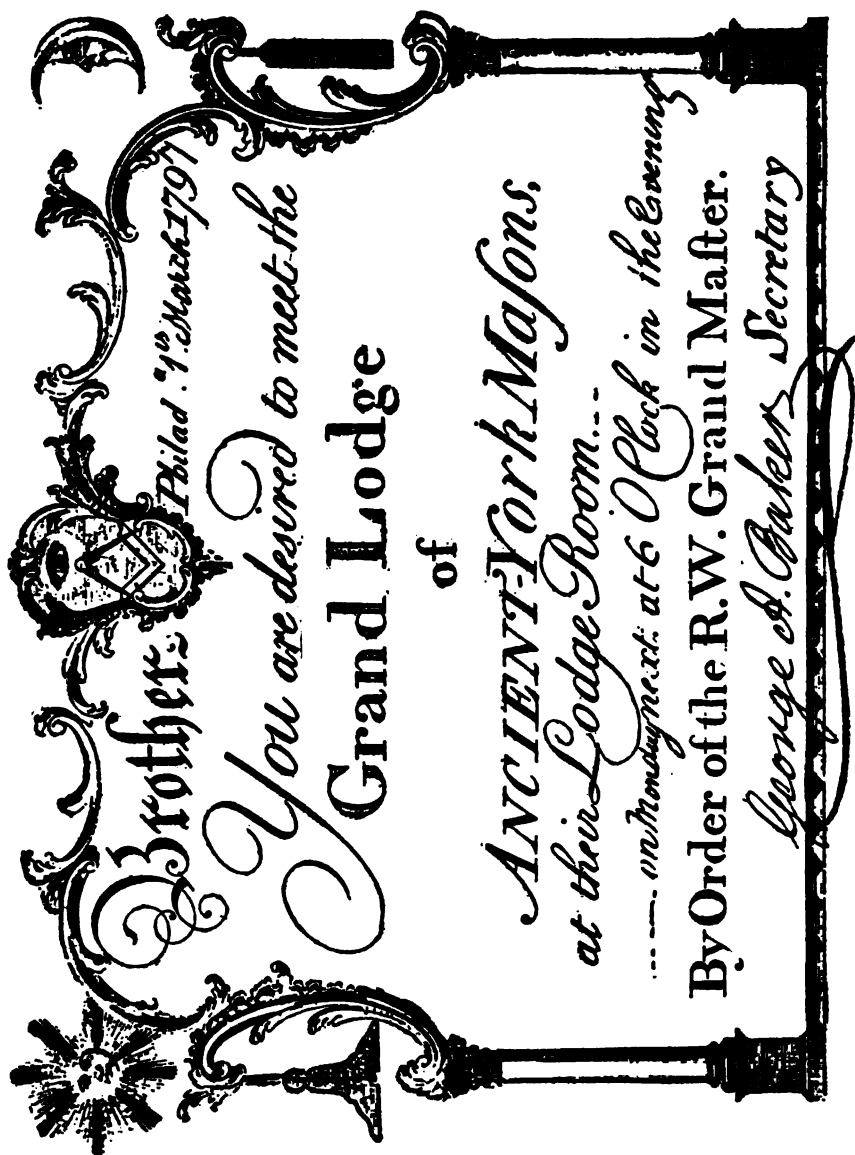 Philad.ª 1st March 1797
Brother.
You are desired to meet the
Grand Lodge
of
ANCIENT-York Maſons,
at their Lodge Room...--
on Monday next: at 6 O Clock in the Evening
By Order of the R.W. Grand Maſter.
George A. Baker Secretary